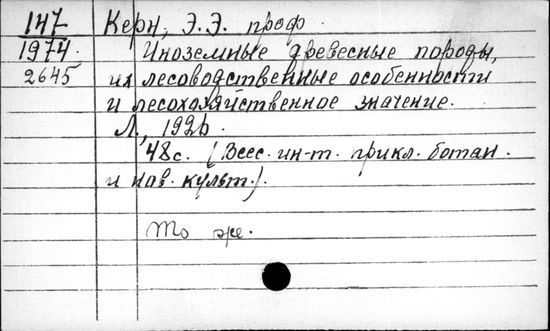 147 Керн, Э.Э. проф.
1974. Иноземные древесные породы,
2645 их лесоводственные особенности
и лесохозяйственное значение.
Л., 1926.
48с. (Всес. ин-т. прикл. ботан.
и нов. культ.).
То же.